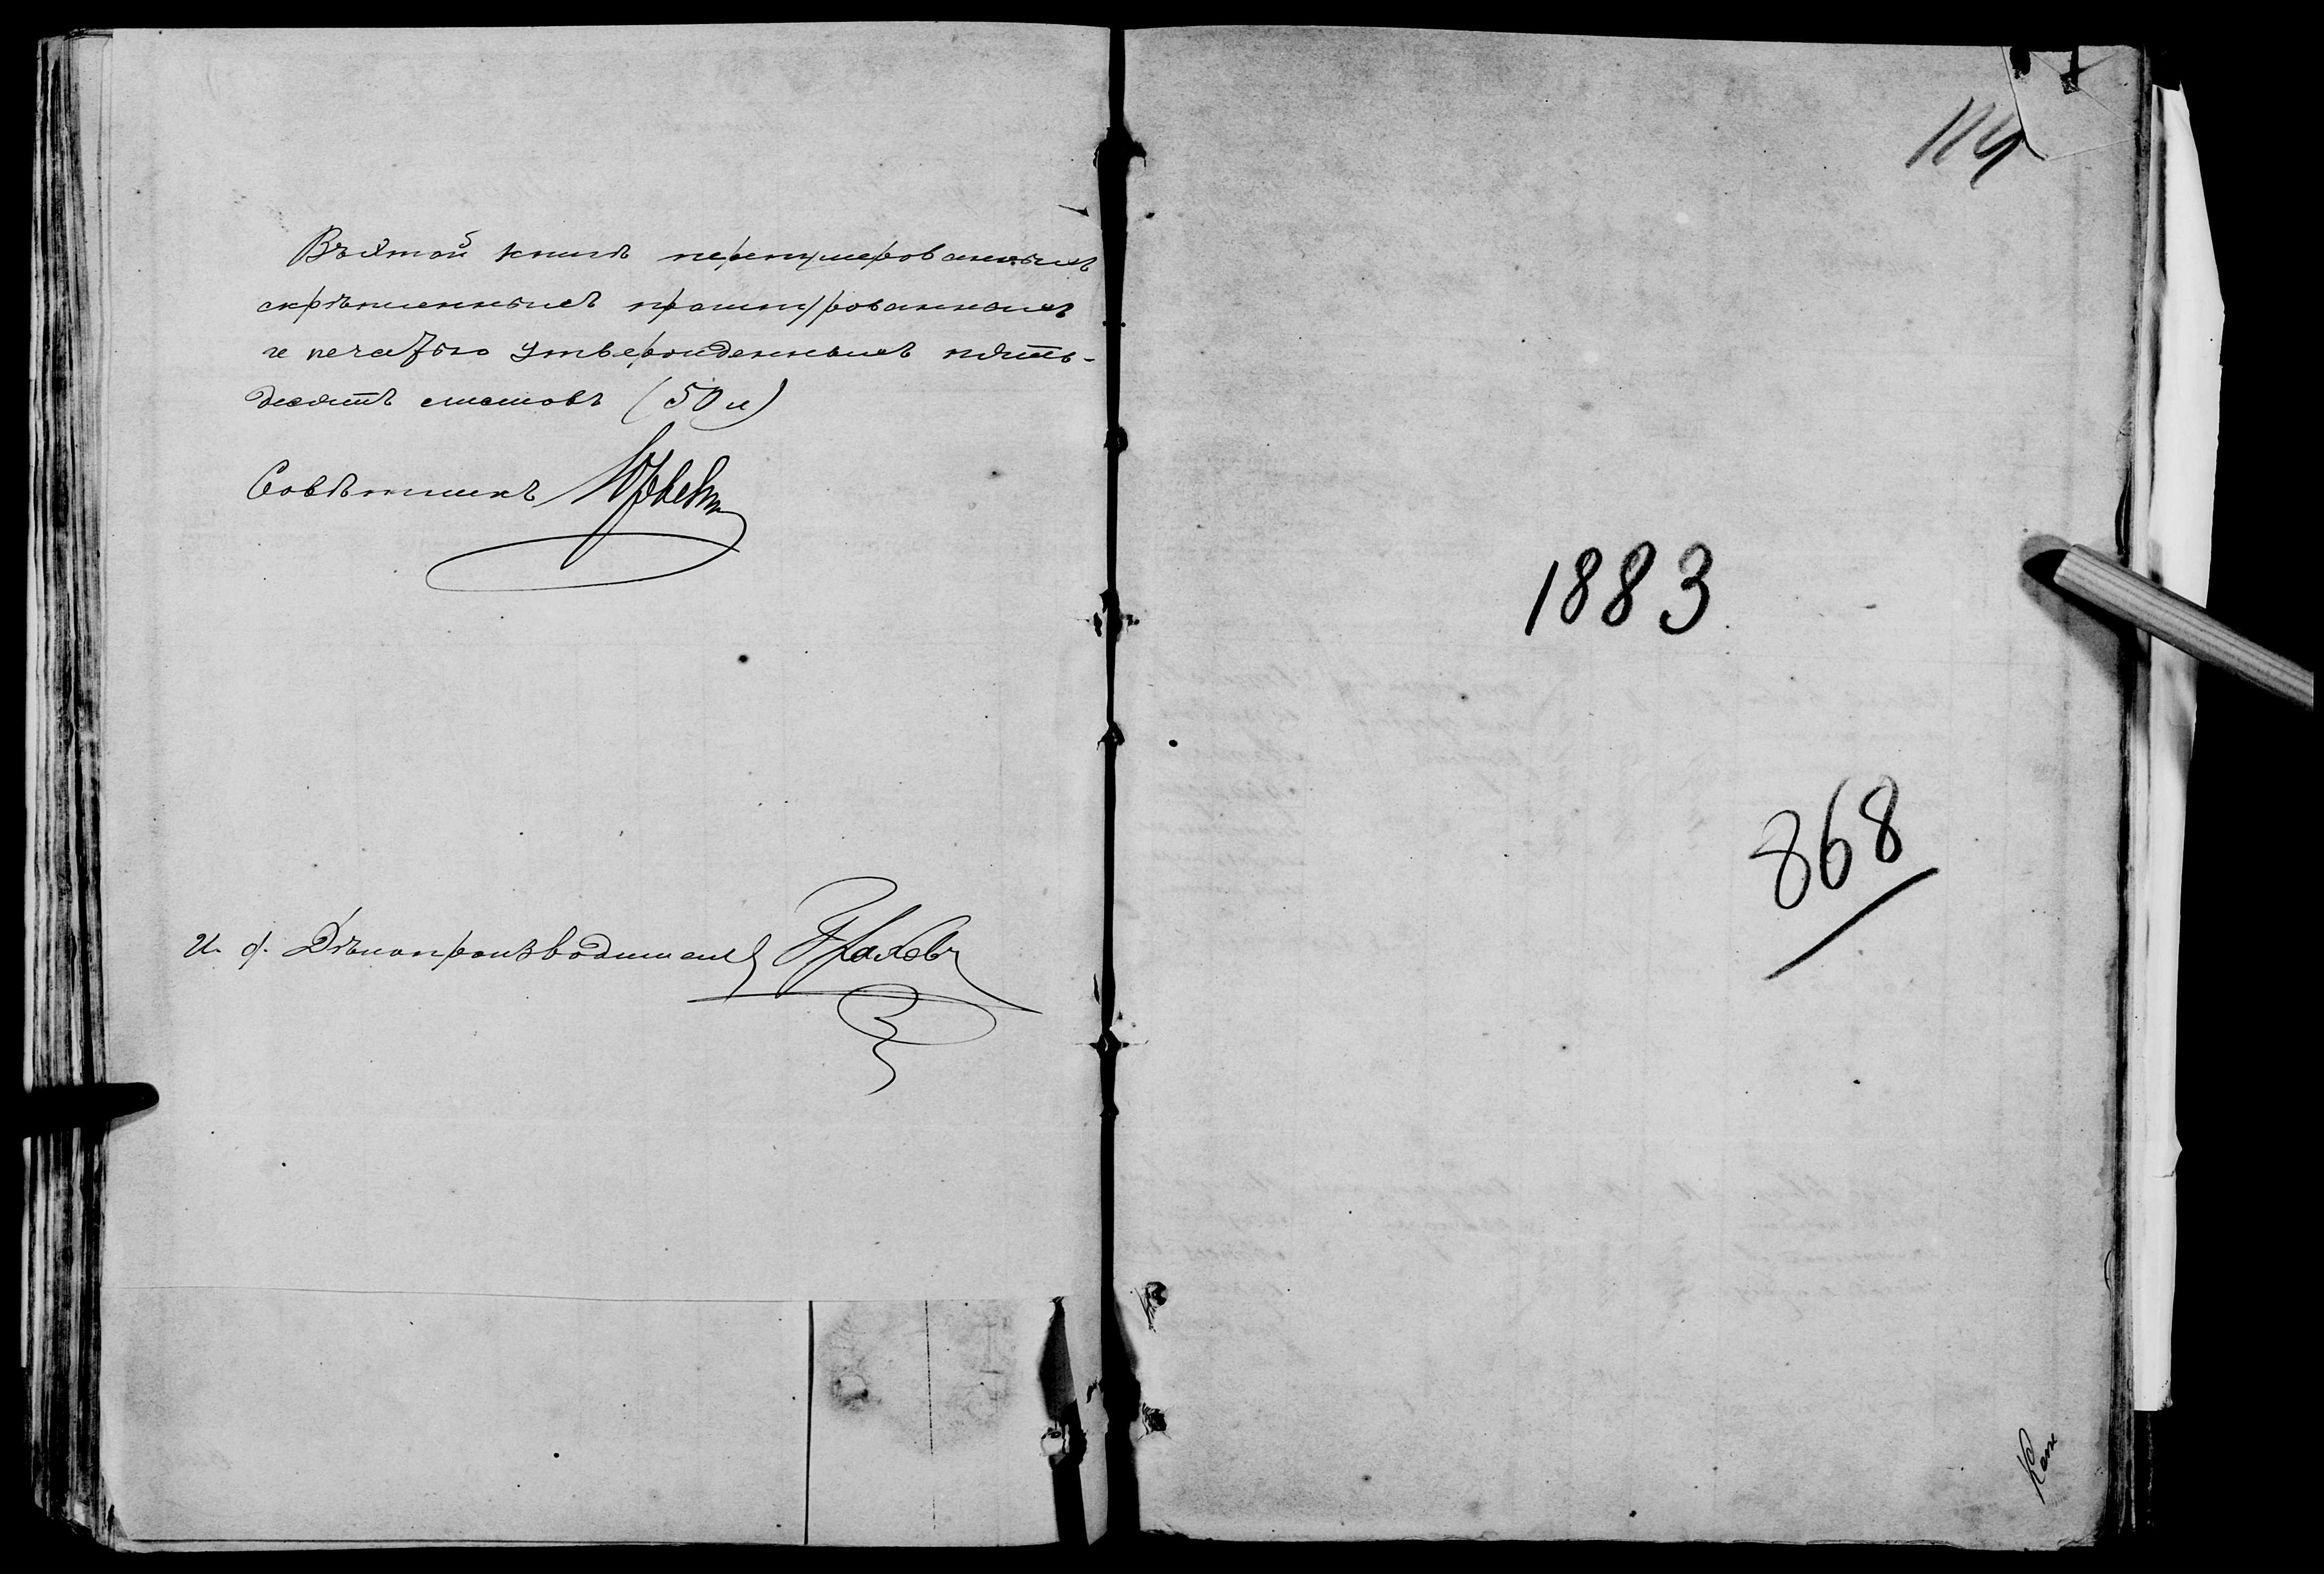 Въ этой книгѣ перенумерованныхъ
скрѣпленныхъ прошнурованныхъ
и печатью утвержденныхъ пять-
десятъ листовъ (50 л)
Совѣтникъ
И. д. Дѣлопроизводителя
114
1883
868